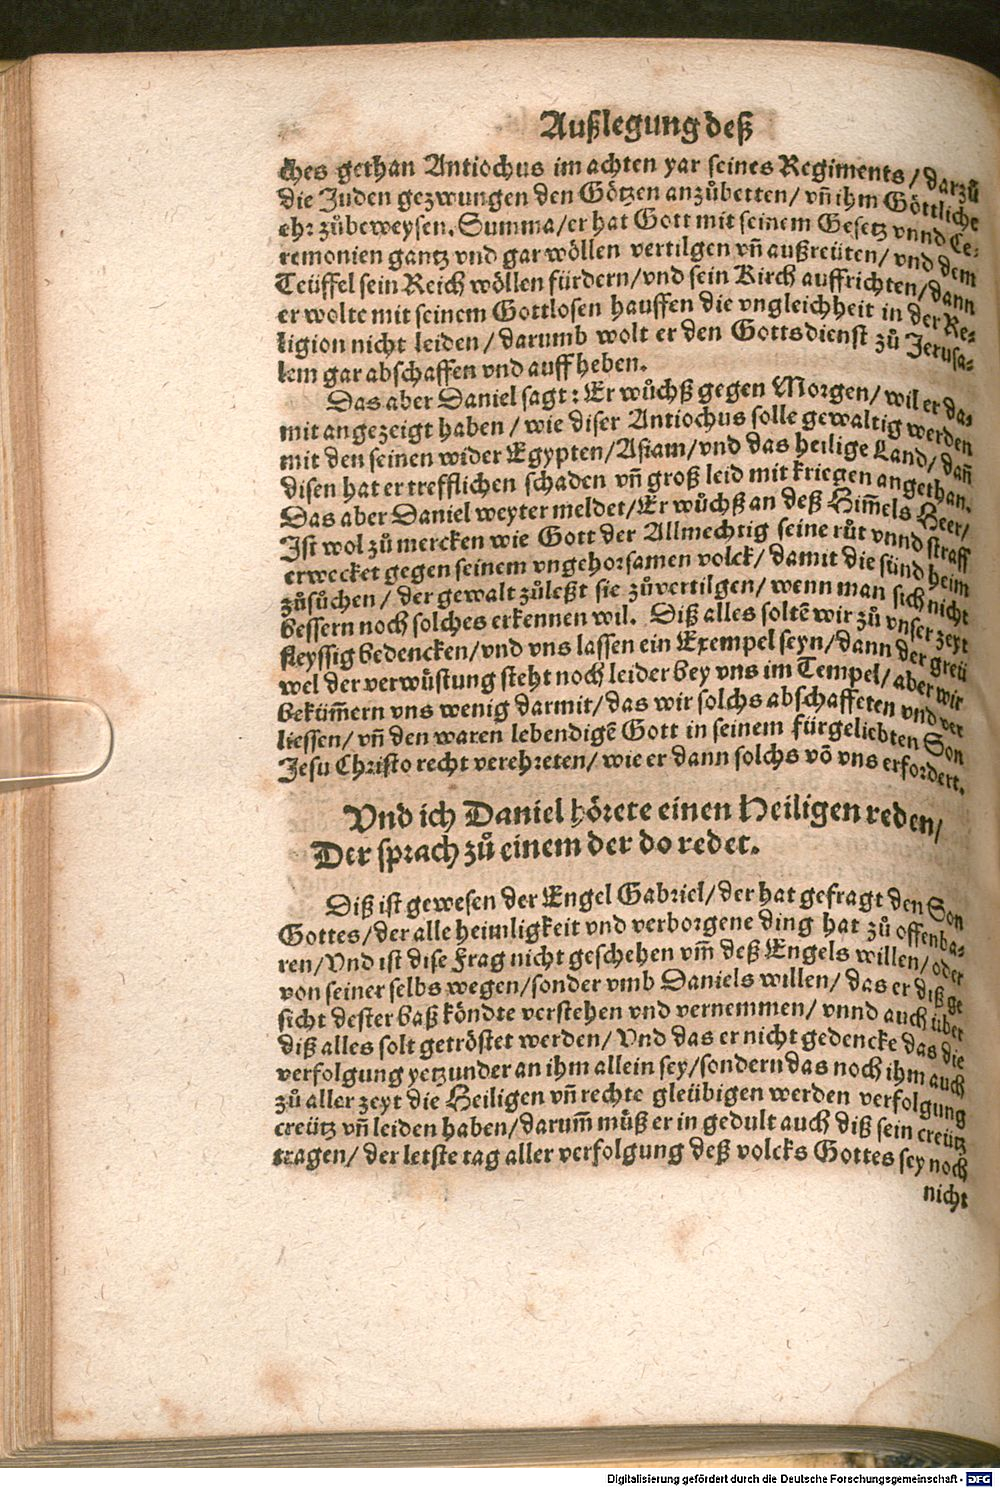 Außlegung deß
ches gethan Antiochus im achten yar seines Regiments / darzů
die Juden gezwungen den Götzen anzůbetten / vñ ihm Göttliche
ehr zůbeweysen. Summa / er hat Gott mit seinem Gesetz vnnd Ce-
remonien gantz vnd gar wöllen vertilgen vñ außreüten / vnd dem
Teüffel sein Reich wöllen fürdern / vnd sein Kirch auffrichten / dann
er wolte mit seinem Gottlosen hauffen die vngleichheit in der Re-
ligion nicht leiden / darumb wolt er den Gottsdienst zů Jerusa-
lem gar abschaffen vnd auff heben.
Das aber Daniel sagt : Er wůchß gegen Morgen / wil er da-
mit angezeigt haben / wie diser Antiochus solle gewaltig werden
mit den seinen wider Egypten / Asiam / vnd das heilige Land / dañ
disen hat er trefflichen schaden vñ groß leid mit kriegen angethan.
Das aber Daniel weyter meldet / Er wůchß an deß Him̃els Heer /
Ist wol zů mercken wie Gott der Allmechtig seine růt vnnd straff
erwecket gegen seinem vngehorsamen volck / damit die sünd heim
zůsůchen / der gewalt zůleßt sie zůvertilgen / wenn man sich nicht
bessern noch solches erkennen wil. Diß alles soltẽ wir zů vnser zeyt
fleyssig bedencken / vnd vns lassen ein Exempel seyn / dann der greü
wel der verwüstung steht noch leider bey vns im Tempel / aber wir
beküm̃ern vns wenig darmit / das wir solchs abschaffeten vnd ver
liessen / vñ den waren lebendigẽ Gott in seinem fürgeliebten Son
Jesu Christo recht verehreten / wie er dann solchs võ vns erfordert.
Vnd ich Daniel hörete einen Heiligen reden /
Der sprach zů einem der do redet.
Diß ist gewesen der Engel Gabriel / der hat gefragt den Son
Gottes / der alle heimligkeit vnd verborgene ding hat zů offenba-
ren / Vnd ist dise frag nicht geschehen vm̃ deß Engels willen / oder
von seiner selbs wegen / sonder vmb Daniels willen / das er diß ge
sicht dester baß köndte verstehen vnd vernemmen / vnnd auch über
diß alles solt getröstet werden / Vnd das er nicht gedencke das die
verfolgung yetzunder an ihm allein sey / sondern das noch ihm auch
zů aller zeyt die Heiligen vñ rechte gleübigen werden verfolgung
creütz vñ leiden haben / darum̃ můß er in gedult auch diß sein creütz
tragen / der letste tag aller verfolgung deß volcks Gottes sey noch
nicht
Digitalisierung gefördert durch die Deutsche Forschungsgemeinschaft - DFG